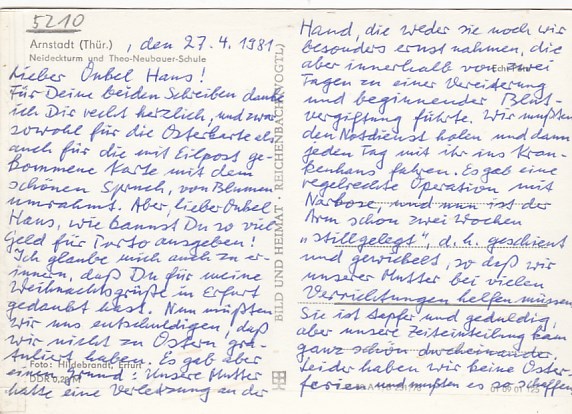 5210
Arnstadt (Thür.)
, den 27.4.1981
Neideckturm und Theo-Neubauer-Schule
Lieber Onkel Hans!
Für Deine beiden Schreiben danke
ich Dir recht herzlich, und zwar
sowohl für die Osterkarte als
auch für die mit Eilpost ge-
kommene Karte mit dem
schönen Spruch, von Blumen
umrahmt. Aber, lieber Onkel
Hans, wie kannst Du so viel
Geld für Porto ausgeben!
Ich glaube mich auch zu er-
innern, daß Du für meine
Weihnachtsgrüße in Erfurt
gedankt hast. Nun müßten
wir uns entschuldigen, daß
wir nicht zu Ostern gra-
tuliert haben. Es gab aber
Foto: Hildebrandt, Erfurt
einen Grund: Unsere Mutter
DDR 0,20 M
hatte eine Verletzung an der
BILD UND HEIMAT REICHENBACH (VOGTL)
Hand, die weder sie noch wir
besonders ernst nahmen, die
aber innerhalb von zwei
Tagen zu einer Vereiterung
und beginnender Blut-
vergiftung führte. Wir mußten
den Notdienst holen und dann
jeden Tag mit ihr ins Kran-
kenhaus fahren. Es gab eine
regelrechte Operation mit
Narkose, und nun ist der
Arm schon zwei Wochen
„stillgelegt", d. h. geschient
und gewickelt, so daß wir
unserer Mutter bei vielen
Verrichtungen helfen müssen.
Sie ist tapfer und geduldig,
aber unsere Zeiteinteilung kam
ganz schön durcheinander.
Leider haben wir keine Oster-
ferien und mußten es so schaffen
01 09 01 125